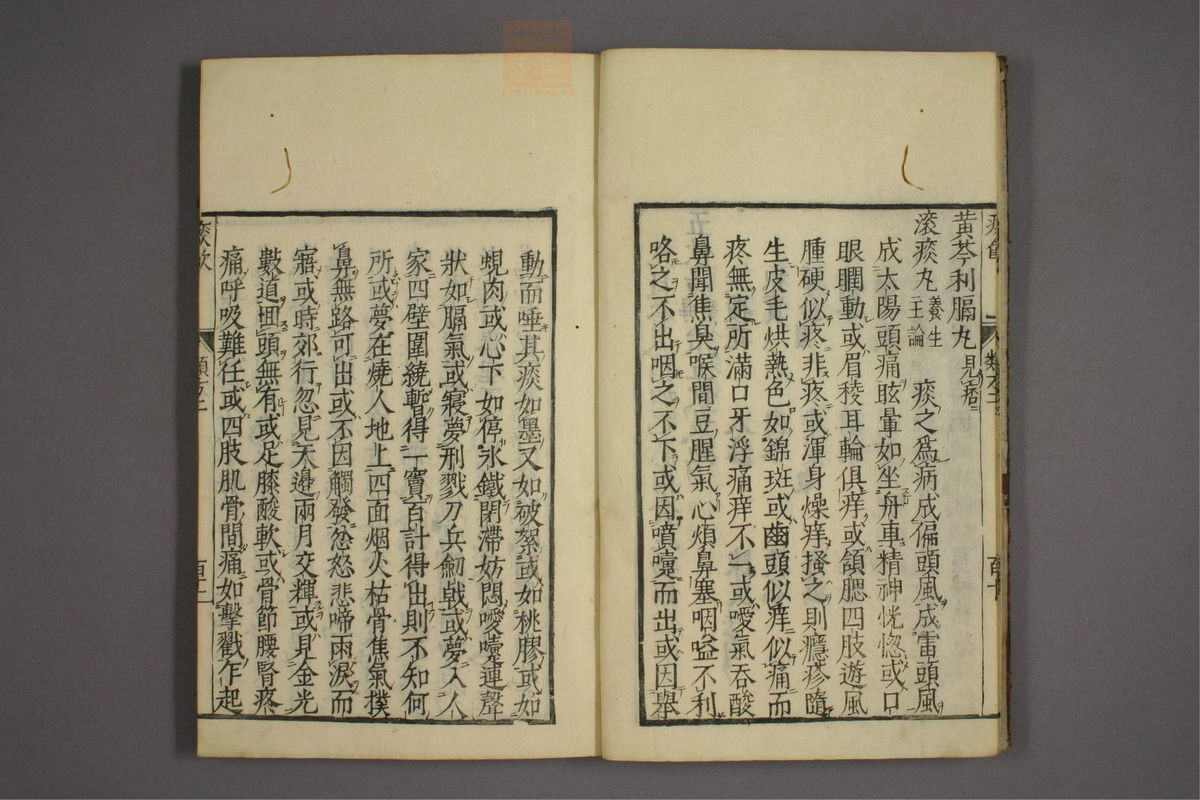 黄芩利膈丸見痞
滾痰丸養生主論 痰之爲病成偏頭風成雷頭風
成太陽頭痛眩暈如坐舟車精神恍惚或口
眼瞤動或眉稜耳輪俱痒或頷腮四肢遊風
腫硬似疼非疼或渾身燥痒搔之則癮疹隨
生皮毛烘熱色如錦斑或齒頭似痒似痛而
疼無定所滿口牙浮痛痒不一或噯氣吞酸
鼻聞焦臭喉間豆腥氣心煩鼻塞咽嗌不利
咯之不出咽之不下或因噴嚏而出或因舉
動而唾其痰如墨又如破絮或如桃膠或如
蜆肉或心下如停氷鐵閉滯妨悶噯嚏連聲
狀如膈氣或寢夢刑戮刀兵劒戟或夢入人
家四壁圍繞暫得一竇百計得出則不知何
所或夢在燒人地上四面烟火枯骨焦氣撲
鼻無路可出或不因觸發忿怒悲啼兩淚而
寤或時郊行忽見天邉兩月交輝或見金光
數道回頭無有或足膝酸軟或骨節腰腎疼
痛呼吸難任或四肢肌骨間痛如擊戳乍起